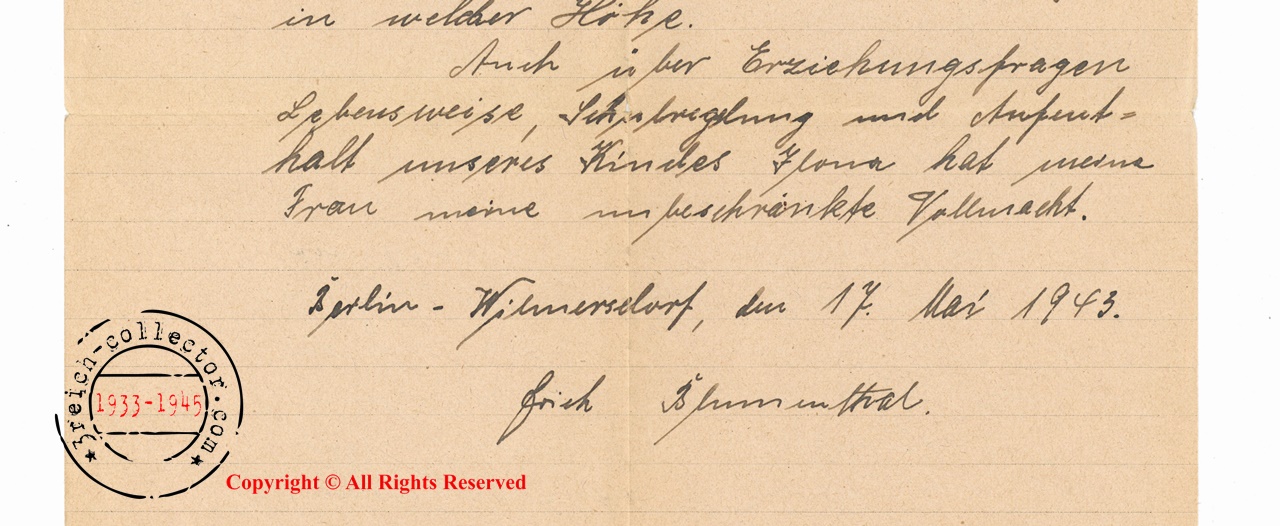 in welcher Höhe.
Auch über Erziehungsfragen
Lebensweise, Schulregelung und Aufent=
halt unseres Kindes Ilona hat meine
Frau meine unbeschränkte Vollmacht.
Berlin - Wilmersdorf, den 17. Mai 1943.
Erich Blumenthal.
3reich-collector.com
1933-1945
Copyright © All Rights Reserved